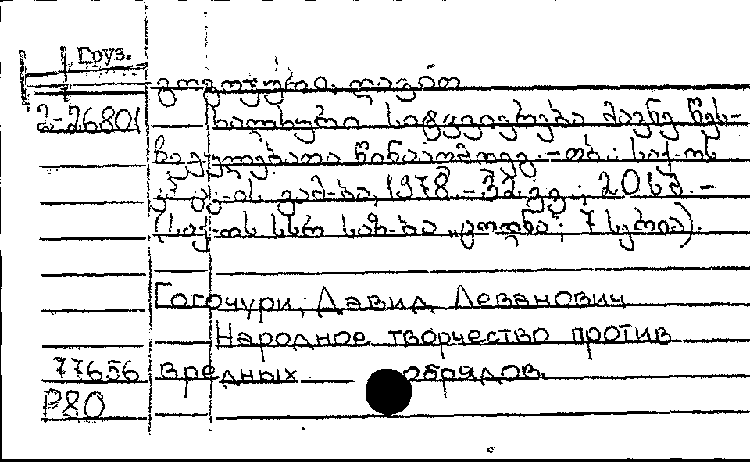 Груз.
გოგოჭური, დავით
2-26801 ხალხური სიტყვიერება მავნე წეს-
ჩვეულებათა წინააღმდეგ. – თბ.: საქ-ის
1978. – 32 გვ.; 20 სმ. –
(საქ-ის სსრ საზ-ბა „ცოდნა“; 7 სერია).
Гогочури, Давид Леванович
Народное творчество против
77656 вредных обрядов.
Р80